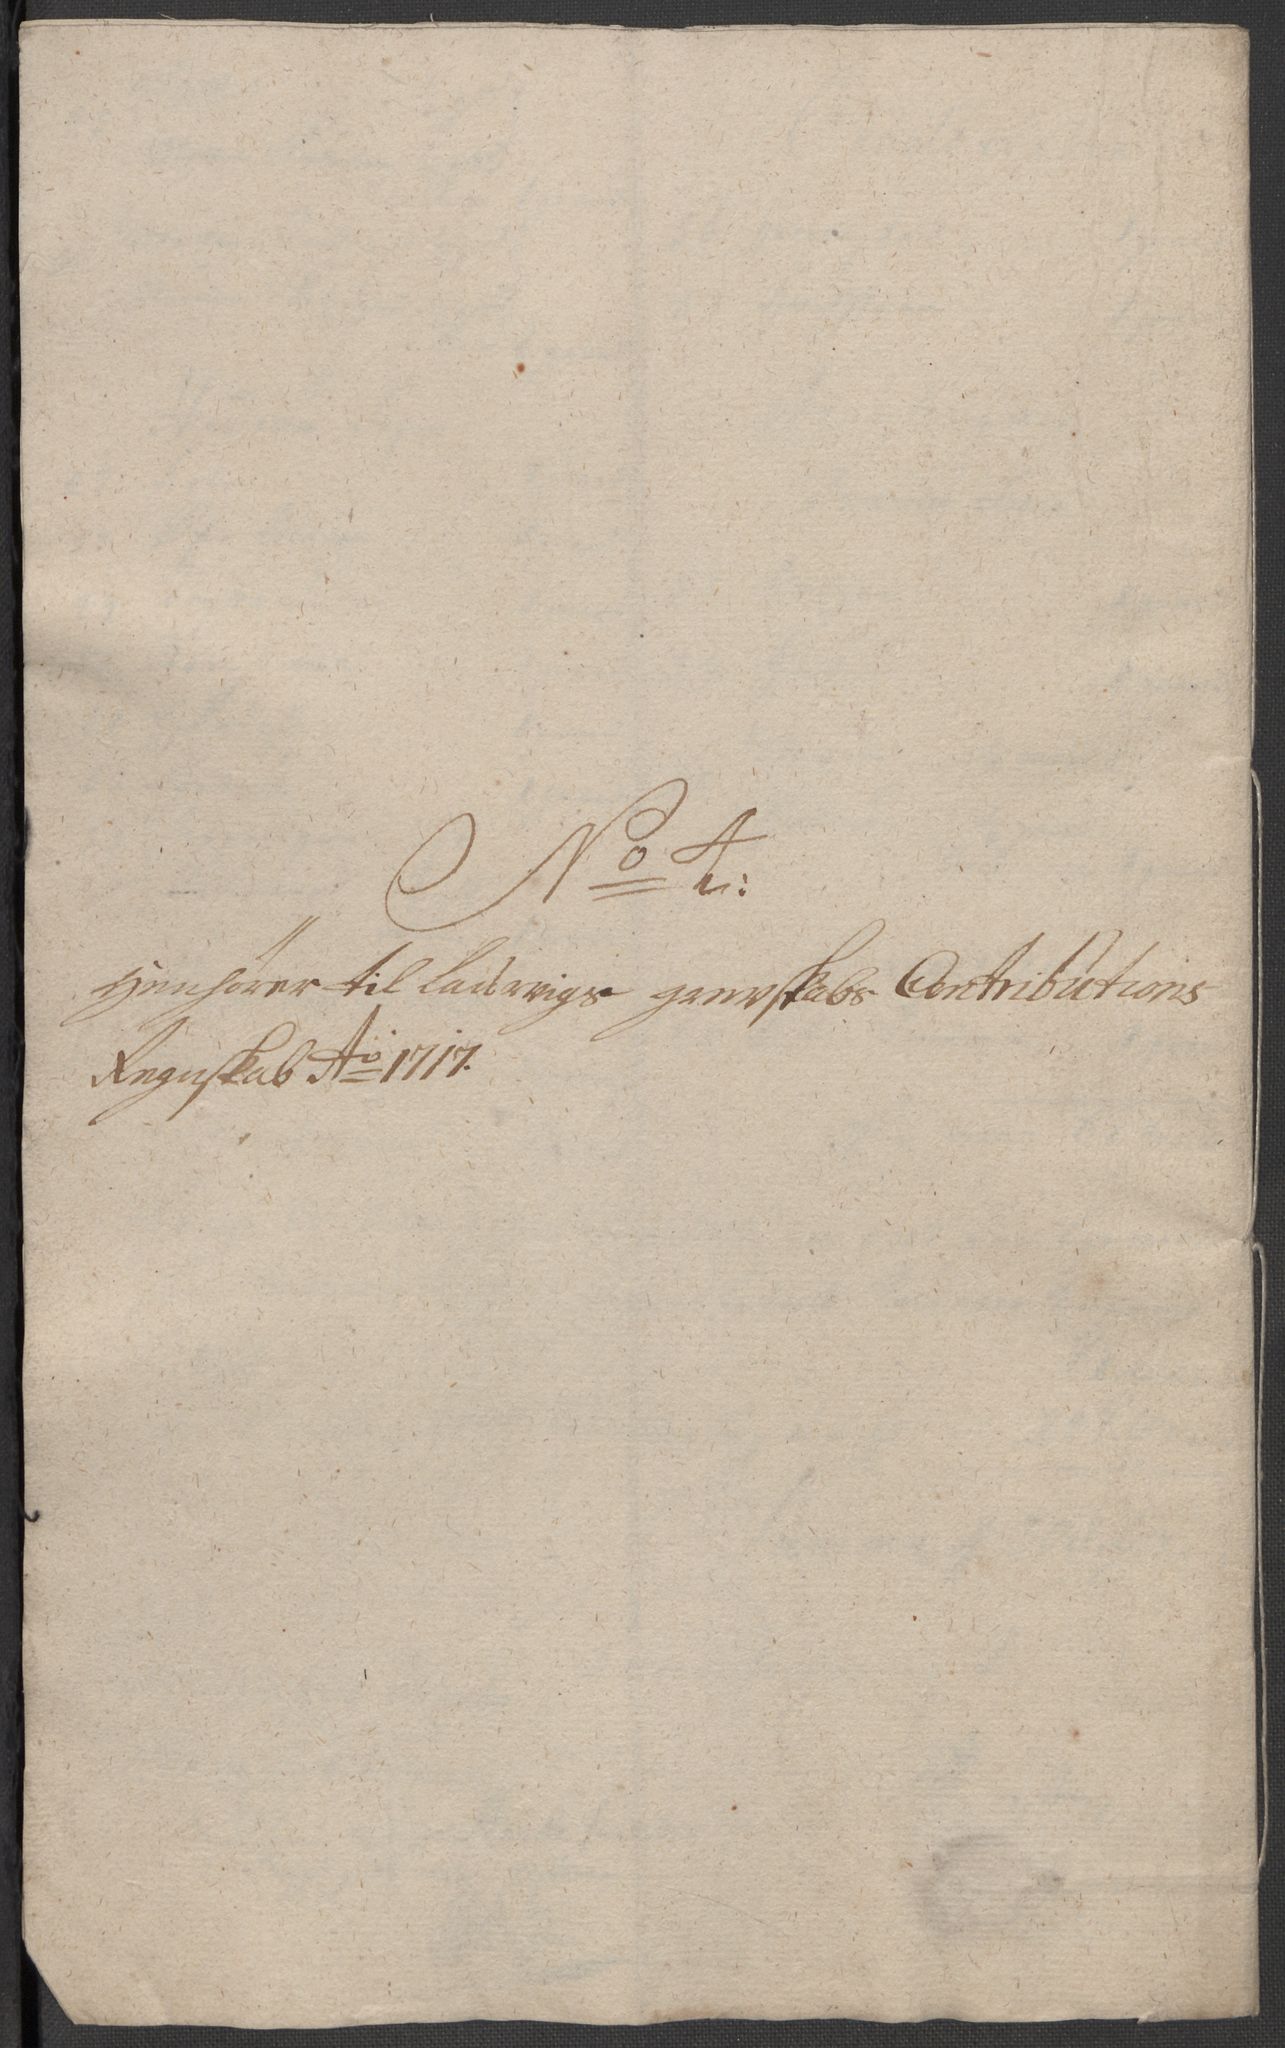 No 4:
Henhører til Laurvigs grevskabs Contributions
Regnskab Ao 1717.